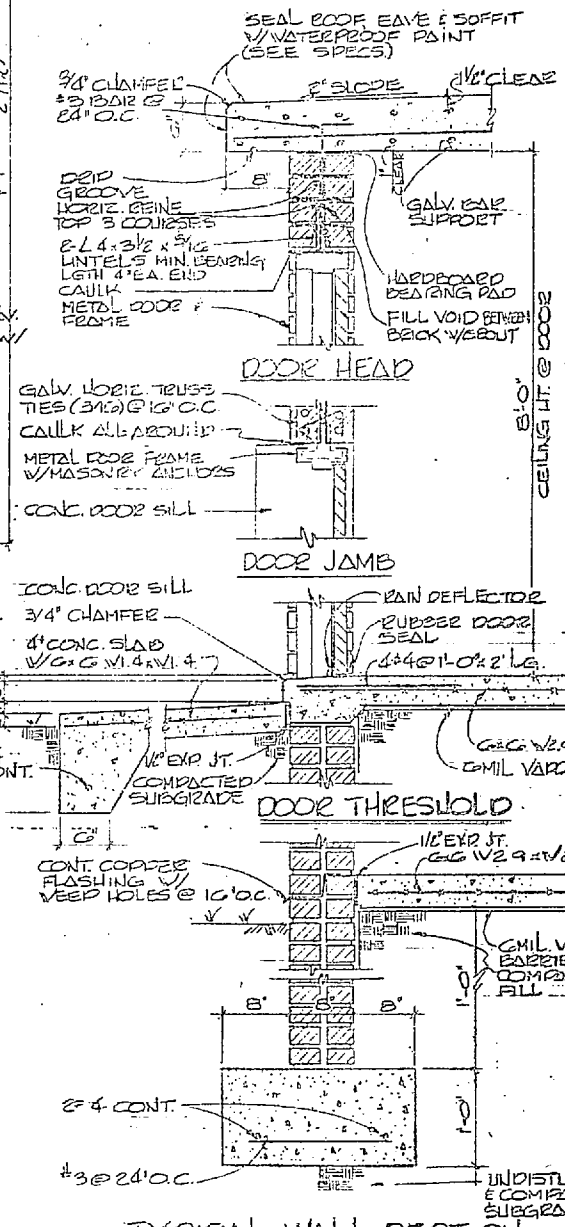 SEAL ROOF, EAVE & SOFFIT
W/WATERPROOF PAINT
(SEE SPECS.)
3/4" CHAMFER
#3 BAR @
24" O.C.
2" SLOPE
1 1/2" CLEAR
DRIP
GROOVE
8"
1"
CLEAR
HORIZ. REINF.
TOP 3 COURSES
GALV. BAR
SUPPORT
2-L 4 x 3 1/2 x 5/16
LINTELS MIN. BEARING
LGTH 4" EA. END
CAULK
METAL DOOR &
FRAME
HARDBOARD
BEARING PAD
FILL VOID BETWEEN
BRICK W/GROUT
DOOR HEAD
8'-0"
CEILING HT. @ DOOR
GALV. HORIZ. TRUSS
TIES (3/16) @ 16" O.C.
CAULK ALL AROUND
METAL DOOR FRAME
W/MASONRY ANCHORS
CONC. DOOR SILL
DOOR JAMB
CONC. DOOR SILL
3/4" CHAMFER
4" CONC. SLAB
W/6x6 W1.4xW1.4
RAIN DEFLECTOR
RUBBER DOOR
SEAL
4#4@1'-0"x2' LG.
ONT.
1/2" EXP. JT.
COMPACTED
SUBGRADE
6x6 W2.9
6 MIL VAPO
6"
DOOR THRESHOLD
CONT. COPPER
FLASHING W/
WEEP HOLES @ 16" O.C.
1/2" EXP. JT.
6x6 W2.9xW2
6 MIL. V
BARRIE
COMPA
FILL
1'-0"
8"
8"
8"
2-#4 CONT.
1'-0"
#3@24"O.C.
UNDISTU
& COMPA
SUBGRA
TYPICAL WALL SECT